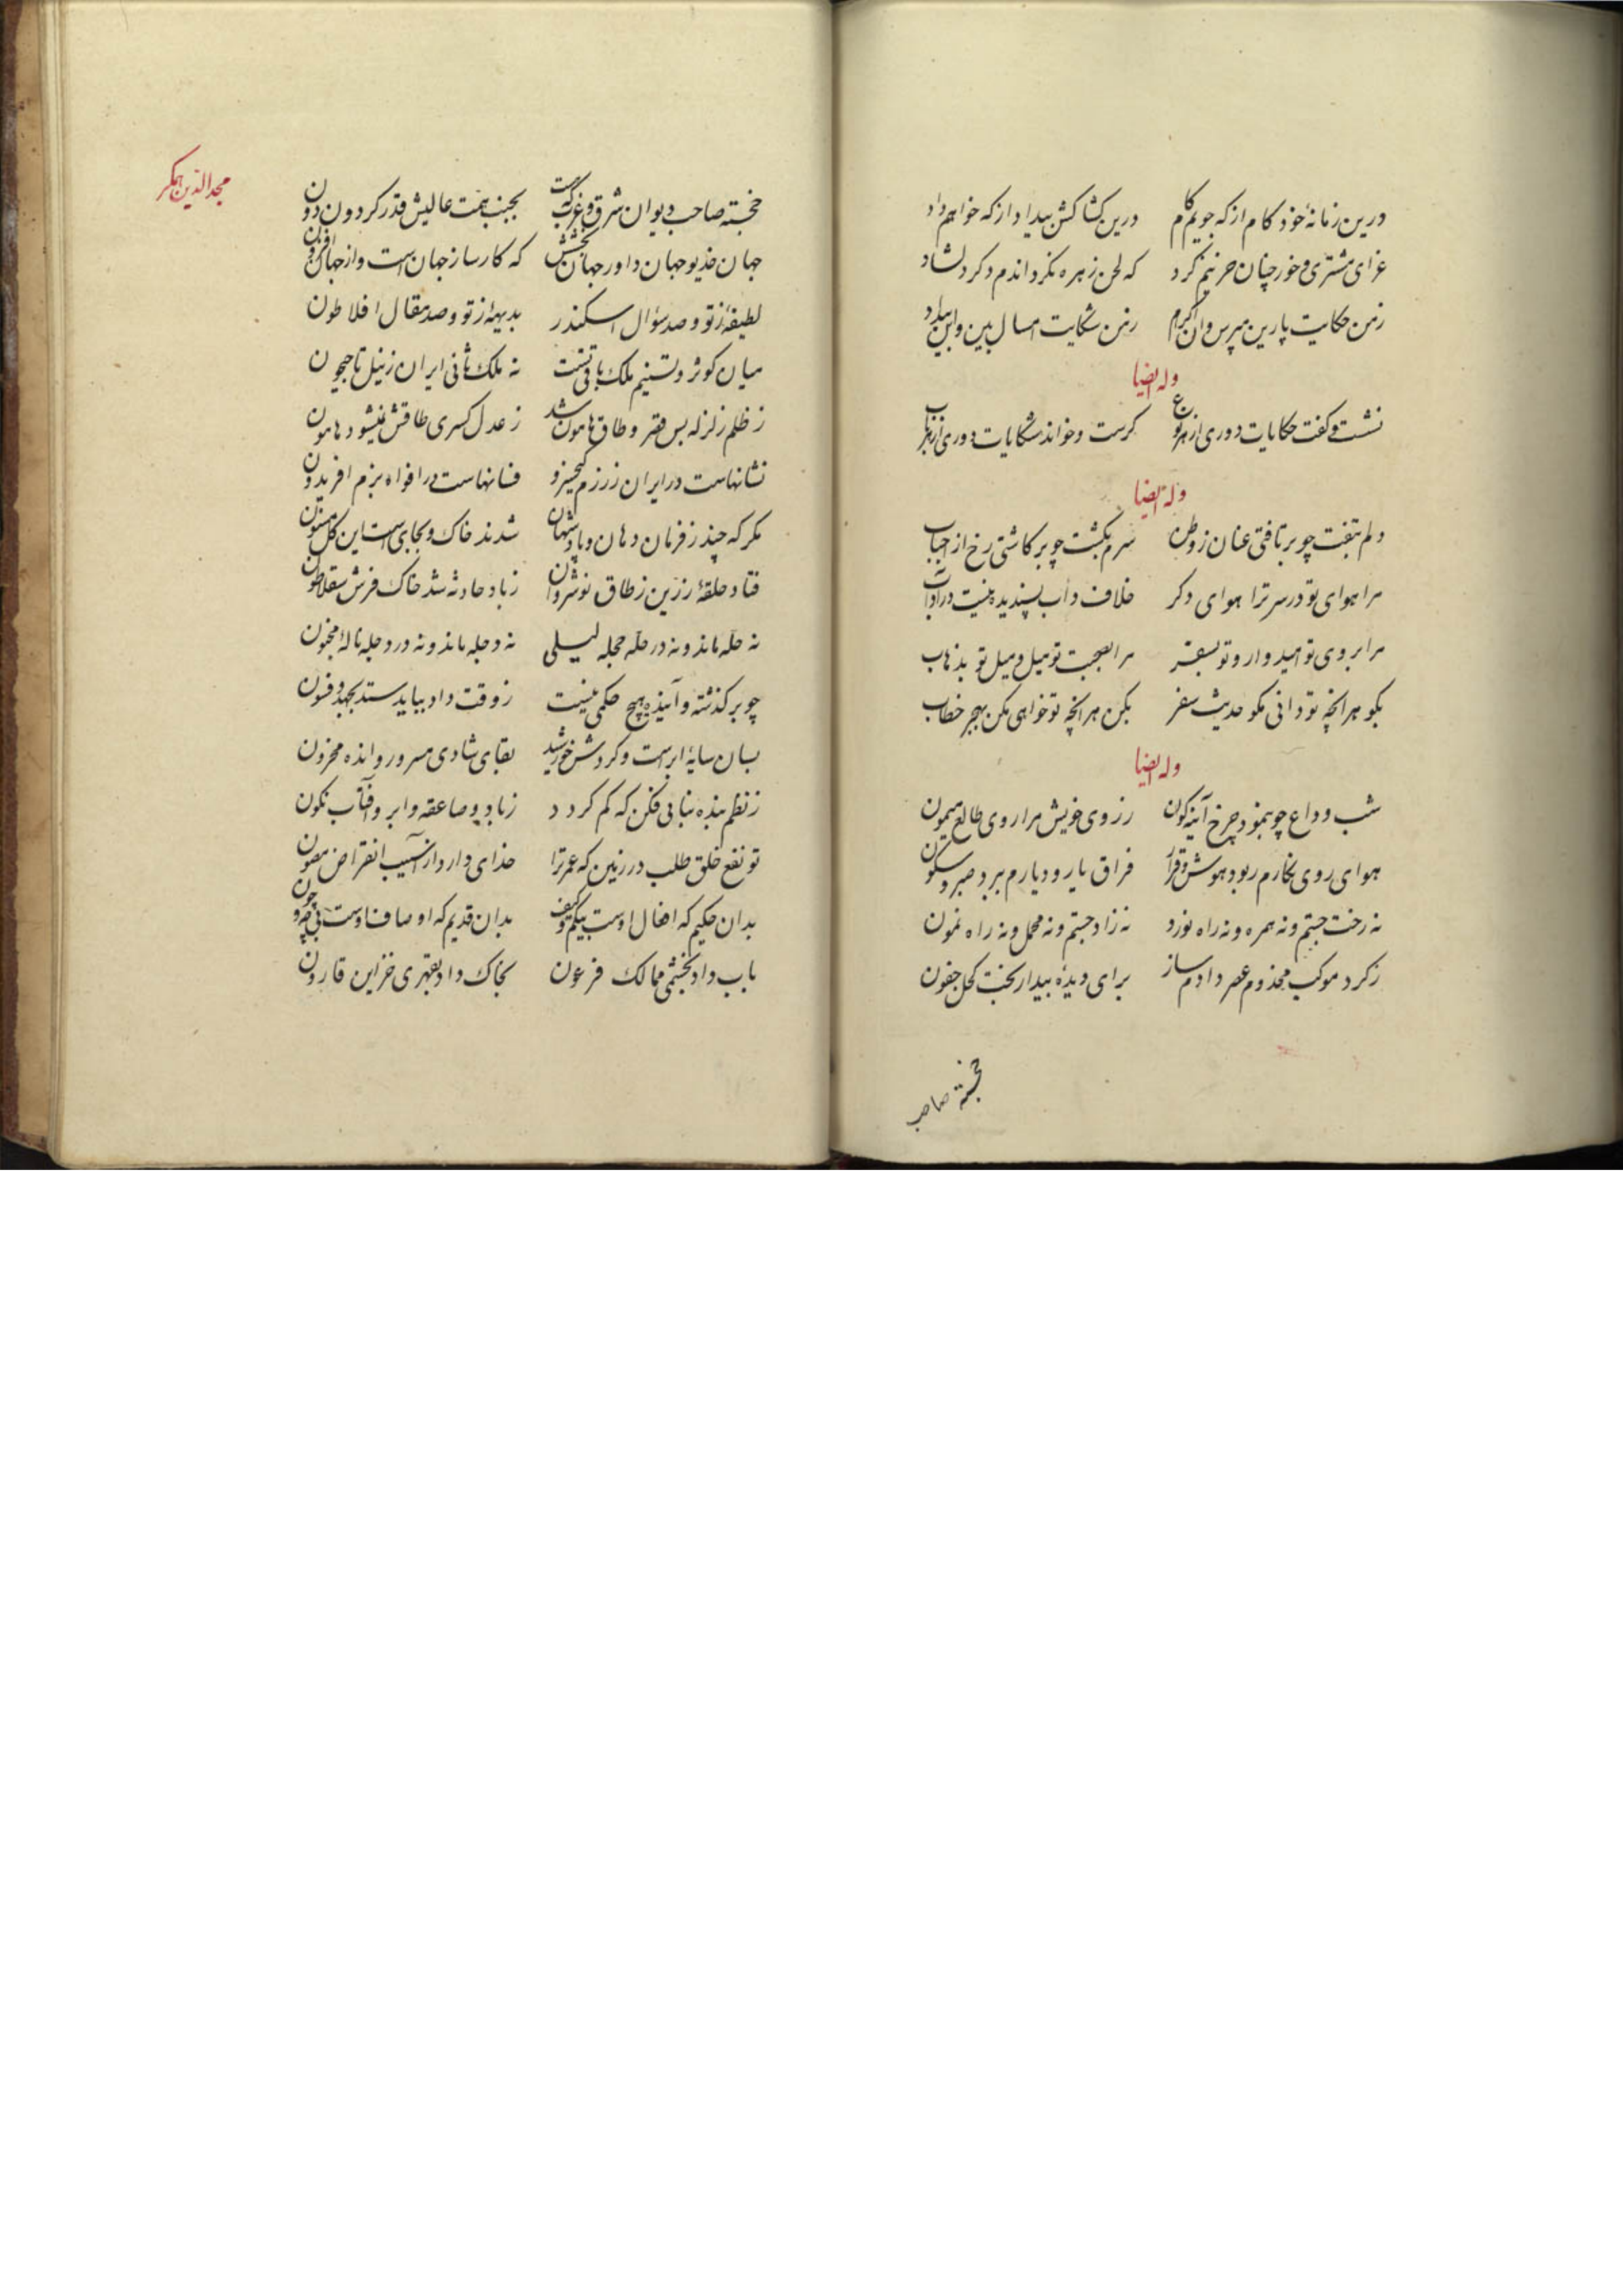 درین زمانهٔ خود کام از که جویم کام درین کشاکش بیداد از که خواهم داد
عزای مشتری و خور چنان حزینم کرد که لحن زهره نکرداندم دکر دلشاد
زمن حکایت پارین مپرس وان اکرام زمن شکایت امسال بین واین بیداد
وله ایضا
نشست و کفت حکایات دوری از هر نوع کرست و خواند شکایات دوری از هر باب
وله ایضا
دلم بتفت چو برتافتی عنان ز وطن سرم بکشت چو برکاشتی رخ از احباب
مرا هوای تو در سر ترا هوای دکر خلاف دأب پسندیده نیست در آداب
مرا بروی تو امید وار و تو بسفر مرا بصحبت تو میل و میل تو بذهاب
بکو هر انچه تو دانی مکو حدیث سفر بکن هر انچه تو خواهی مکن بهجر خطاب
وله ایضا
شب وداع چو بنمود چرخ آینه کون ز روی خویش مرا روی طالع میمون
هوای روی نکارم ربود هوش و قرار فراق یار و دیارم ببرد صبر و سکون
نه رخت جستم و نه همره و نه راه نورد نه زاد جستم و نه محمل و نه راه نمون
ز کرد موکب مخدوم عصر دادم ساز برای دیدهٔ بیدار بخت کحل جفون
خجسته صاحب
مجد الدین همکر
خجسته صاحب دیوان شرق و غرب که هست بجنب همت عالیش قدر کردون دون
جهان خدیو جهان داور جهان بخش که کار ساز جهان است و از جهان افزون
لطیفهٔ ز تو و صد سؤال اسکندر بدیههٔ ز تو و صد مقال افلاطون
میان کوثر و تسنیم ملک باقی تست نه ملک فانی ایران ز نیل تا جیحون
ز ظلم زلزله بس قصر و طاق هامون شد ز عدل کسری طاقش نمیشود هامون
نشانهاست در ایران ز رزم کیخسرو فسانهاست در افواه بزم افریدون
مکر که چند ز فرمان دهان و پادشهان شدند خاک و بجای است این کل مسنون
فتاد حلقهٔ زرین ز طاق نوشروان ز باد حادثه شد خاک فرش سقلاطون
نه حله ماند و نه در حله حجله لیلی نه دجله ماند و نه در دجله نالهٔ مجنون
چو بر کذشته و آینده هیچ حکمی نیست ز وقت داد بباید ستد بجهد و فسون
بسان سایهٔ ابرست و کردش خورشید بقای شادی مسرور و انده محزون
ز نظم بنده بنایی فکن که کم کردد ز باد و صاعقه و ابر و آفتاب نکون
تو نفع خلق طلب در زمین که عمر ترا خدای دارد از آسیب انقراض مصون
بدان حکیم که افعال اوست بیکم و کیف بدان قدیم که اوصاف اوست بی چه و چون
بآب داد بخشمی ممالک فرعون بخاک داد بقهری خزاین قارون